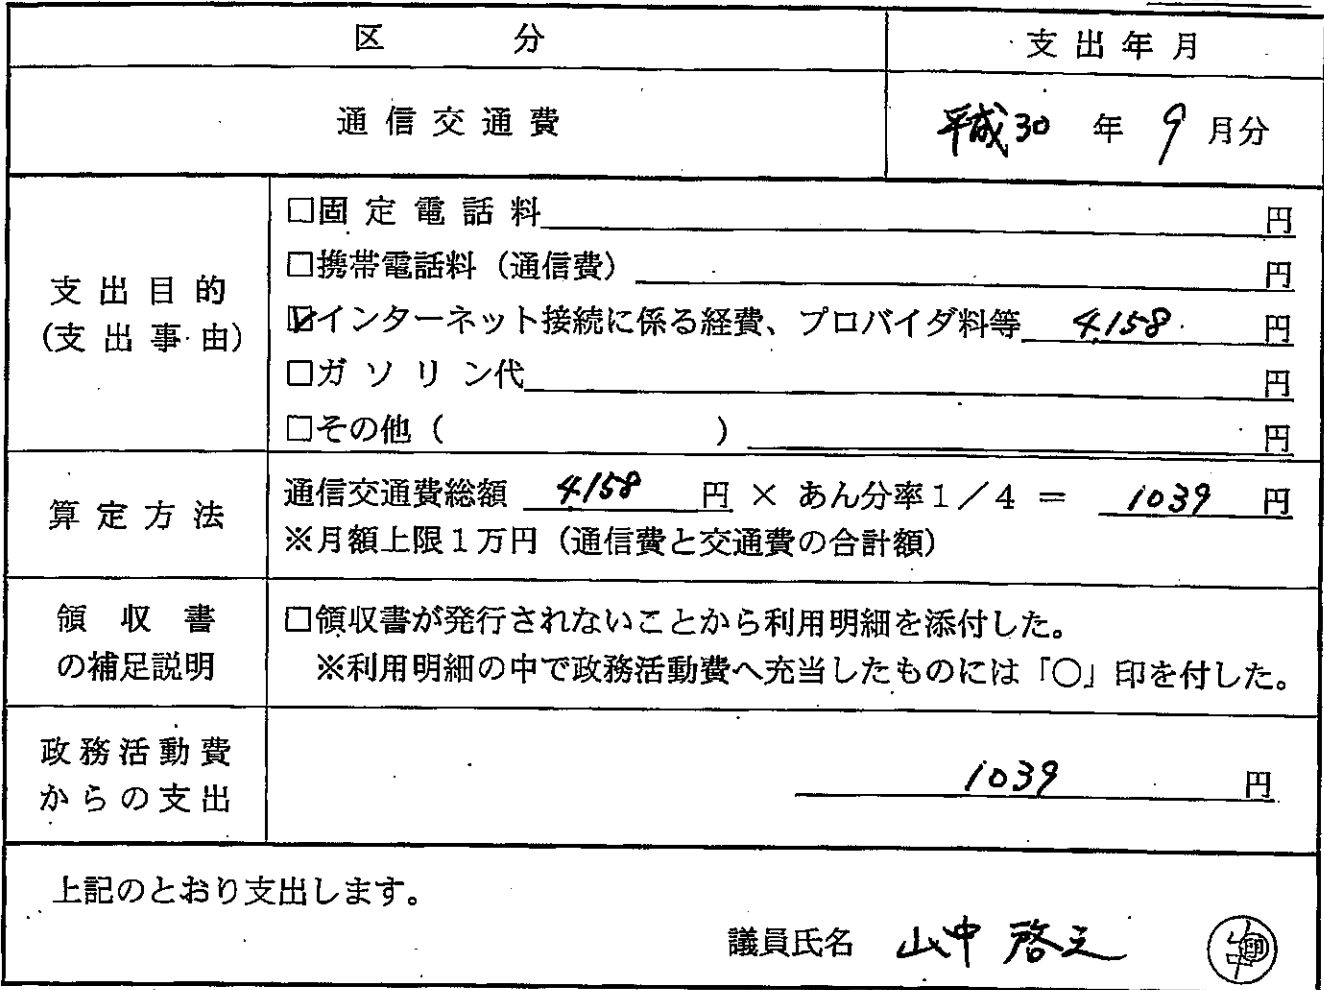 区 分 支出年月
通信交通費 平成30 年 9 月分
支出目的
(支出事由)
□固定電話料 円
□携帯電話料（通信費） 円
☑インターネット接続に係る経費、プロバイダ料等 4,158 円
□ガソリン代 円
□その他（ ） 円
算定方法
通信交通費総額 4,158 円 × あん分率1／4 ＝ 1039 円
※月額上限1万円（通信費と交通費の合計額）
領収書
の補足説明
□領収書が発行されないことから利用明細を添付した。
※利用明細の中で政務活動費へ充当したものには「○」印を付した。
政務活動費
からの支出
1039 円
上記のとおり支出します。
議員氏名 山中 啓之